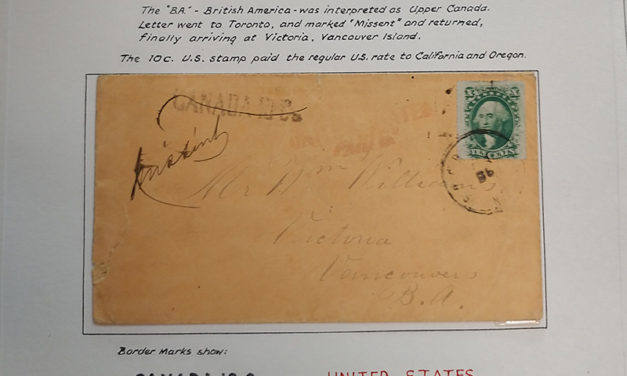 The "B.A." - British America - was interpreted as Upper Canada.
Letter went to Toronto, and marked "Missent" and returned,
finally arriving at Victoria, Vancouver Island.
The 10c. U.S. stamp paid the regular U.S. rate to California and Oregon.
CANADA 10 Cs
Missent
PAID
Mr Wm Williams
Victoria
Vancouvers
B.A.
Border Marks show:
UNITED STATES